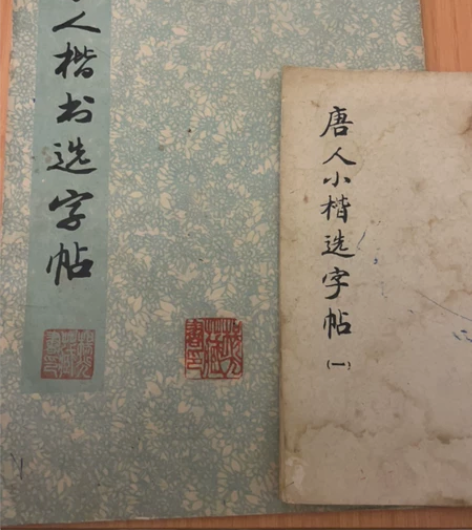 人楷书选字帖
唐人小楷选字帖
(一)